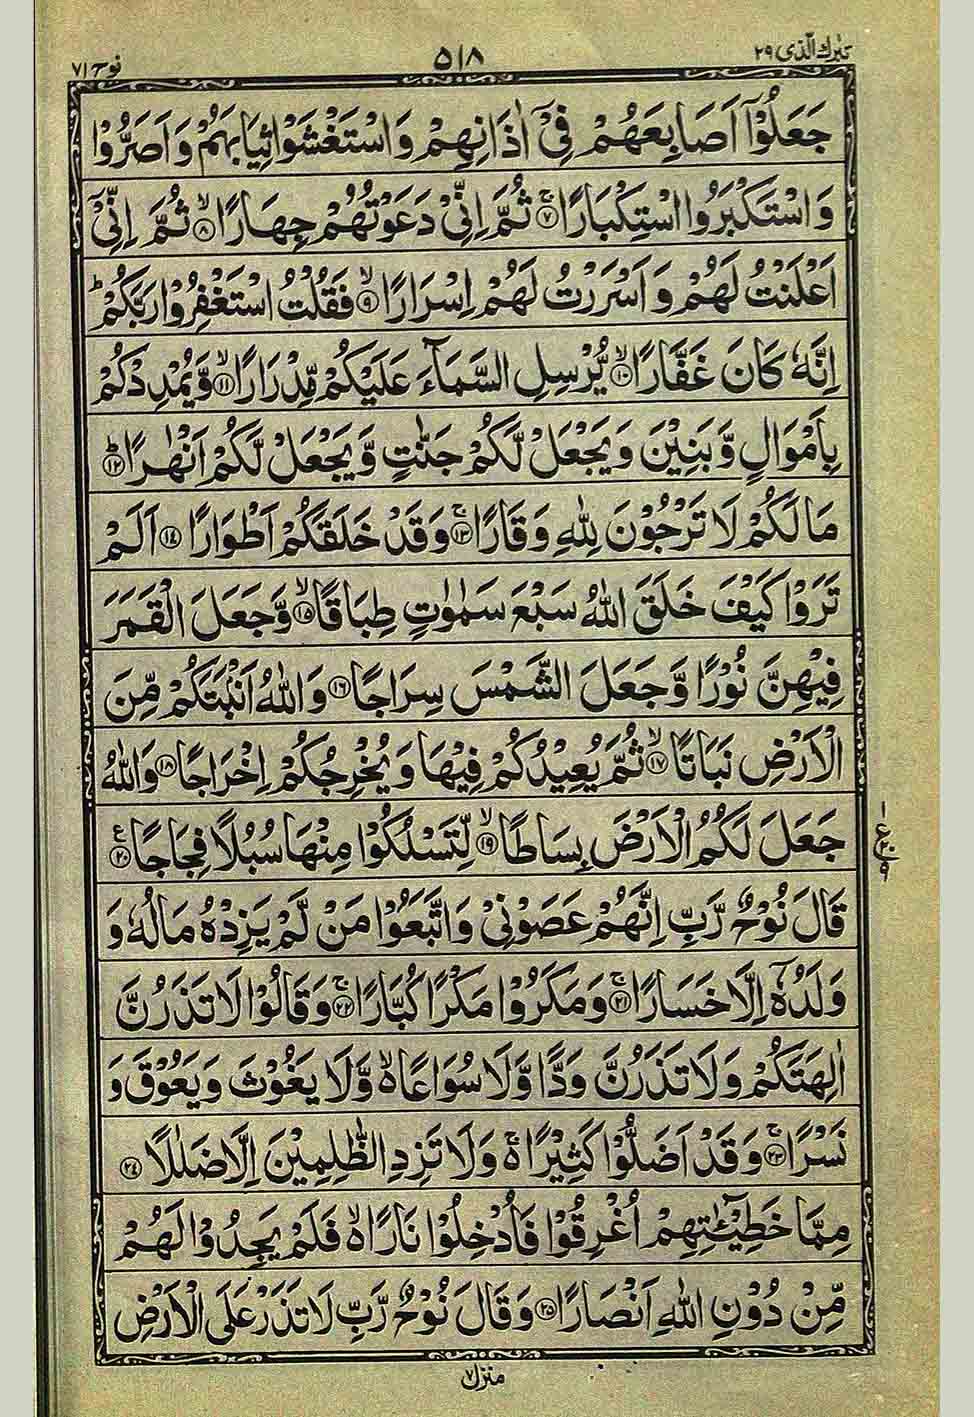 تبٰرك الذی ٢٩
٥١٨
نوح ٧١
جَعَلُوْۤا اَصَابِعَهُمْ فِیْۤ اٰذَانِهِمْ وَاسْتَغْشَوْا ثِيَابَهُمْ وَاَصَرُّوْا
وَاسْتَكْبَرُوا اسْتِكْبَارًا ۚ ٧ ثُمَّ اِنِّیْ دَعَوْتُهُمْ جِهَارًا ۙ ٨ ثُمَّ اِنِّیْۤ
اَعْلَنْتُ لَهُمْ وَاَسْرَرْتُ لَهُمْ اِسْرَارًا ۙ ٩ فَقُلْتُ اسْتَغْفِرُوْا رَبَّكُمْ ؕ
اِنَّهٗ كَانَ غَفَّارًا ۙ ١٠ يُّرْسِلِ السَّمَآءَ عَلَيْكُمْ مِّدْرَارًا ۙ ١١ وَّيُمْدِدْكُمْ
بِاَمْوَالٍ وَّبَنِيْنَ وَيَجْعَلْ لَّكُمْ جَنّٰتٍ وَّيَجْعَلْ لَّكُمْ اَنْهٰرًا ؕ ١٢
مَا لَكُمْ لَا تَرْجُوْنَ لِلّٰهِ وَقَارًا ۚ ١٣ وَقَدْ خَلَقَكُمْ اَطْوَارًا ١٤ اَلَمْ
تَرَوْا كَيْفَ خَلَقَ اللّٰهُ سَبْعَ سَمٰوٰتٍ طِبَاقًا ۙ ١٥ وَّجَعَلَ الْقَمَرَ
فِيْهِنَّ نُوْرًا وَّجَعَلَ الشَّمْسَ سِرَاجًا ١٦ وَاللّٰهُ اَنْۢبَتَكُمْ مِّنَ
الْاَرْضِ نَبَاتًا ۙ ١٧ ثُمَّ يُعِيْدُكُمْ فِيْهَا وَيُخْرِجُكُمْ اِخْرَاجًا ١٨ وَاللّٰهُ
جَعَلَ لَكُمُ الْاَرْضَ بِسَاطًا ۙ ١٩ لِّتَسْلُكُوْا مِنْهَا سُبُلًا فِجَاجًا ع ٢٠
قَالَ نُوْحٌ رَّبِّ اِنَّهُمْ عَصَوْنِیْ وَاتَّبَعُوْا مَنْ لَّمْ يَزِدْهُ مَالُهٗ وَ
وَلَدُهٗۤ اِلَّا خَسَارًا ۚ ٢١ وَمَكَرُوْا مَكْرًا كُبَّارًا ۚ ٢٢ وَقَالُوْا لَا تَذَرُنَّ
اٰلِهَتَكُمْ وَلَا تَذَرُنَّ وَدًّا وَّلَا سُوَاعًا ۙ وَّلَا يَغُوْثَ وَيَعُوْقَ وَ
نَسْرًا ۚ ٢٣ وَقَدْ اَضَلُّوْا كَثِيْرًا ۚ وَلَا تَزِدِ الظّٰلِمِيْنَ اِلَّا ضَلٰلًا ٢٤
مِمَّا خَطِيْٓـٰٔتِهِمْ اُغْرِقُوْا فَاُدْخِلُوْا نَارًا ۙ فَلَمْ يَجِدُوْا لَهُمْ
مِّنْ دُوْنِ اللّٰهِ اَنْصَارًا ٢٥ وَقَالَ نُوْحٌ رَّبِّ لَا تَذَرْ عَلَی الْاَرْضِ
منزل ٧